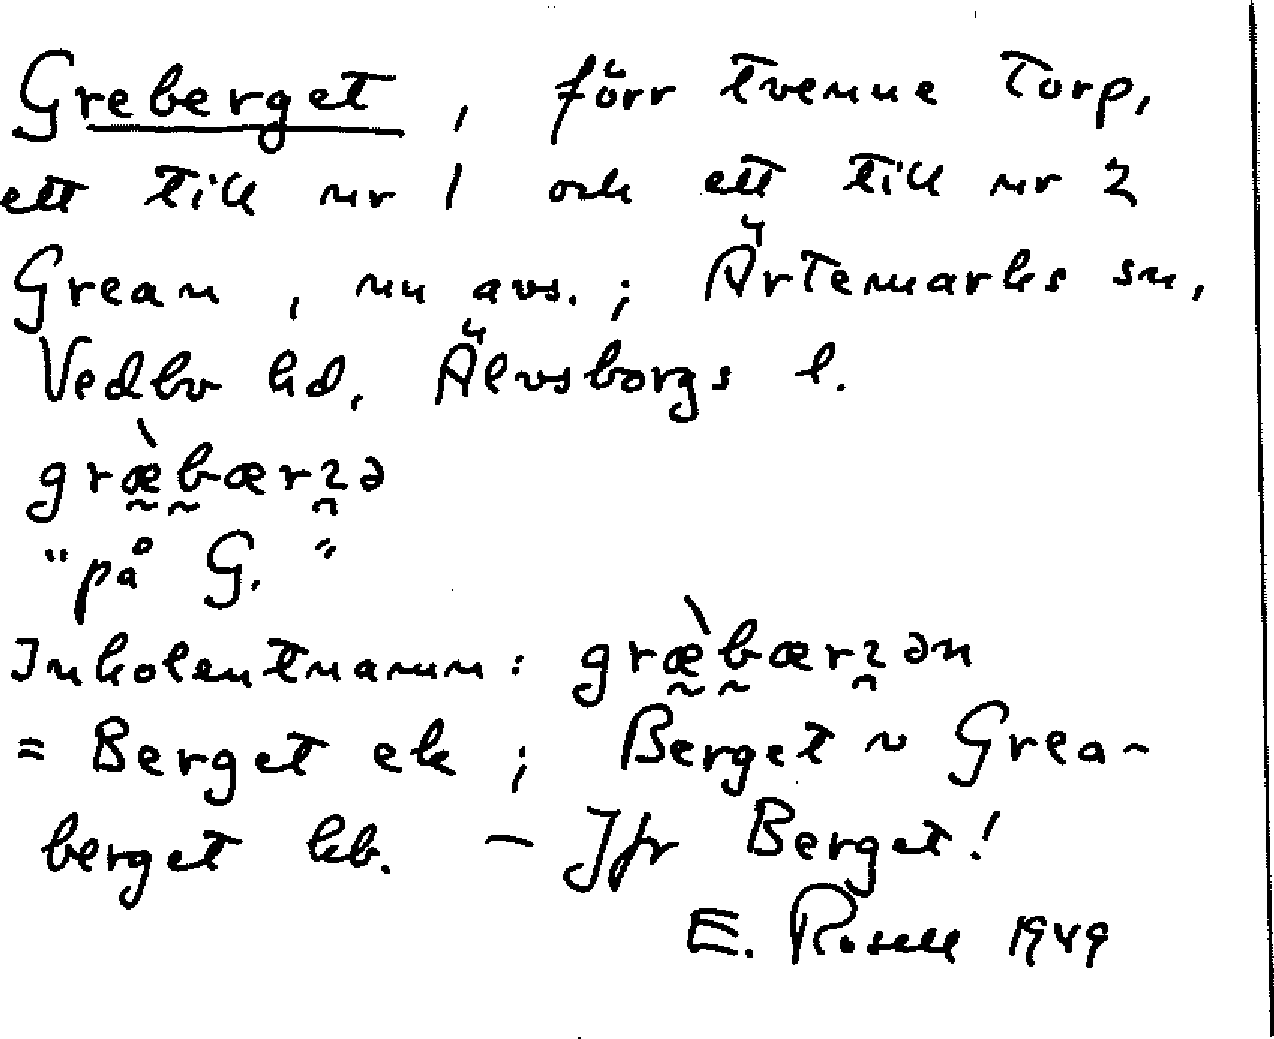 Greberget, förr tvenne torp,
ett till nr 1 och ett till nr 2
Grean, nu avs.; Ärtemarks sn,
Vedbo hd, Älvsborgs l.
græ̀bærʒə
"på G."
Inbolentnamn: græ̀bærʒən
= Berget ek; Berget ~ Grea-
berget kb. — Jfr Berget!
E. Rosell 1949